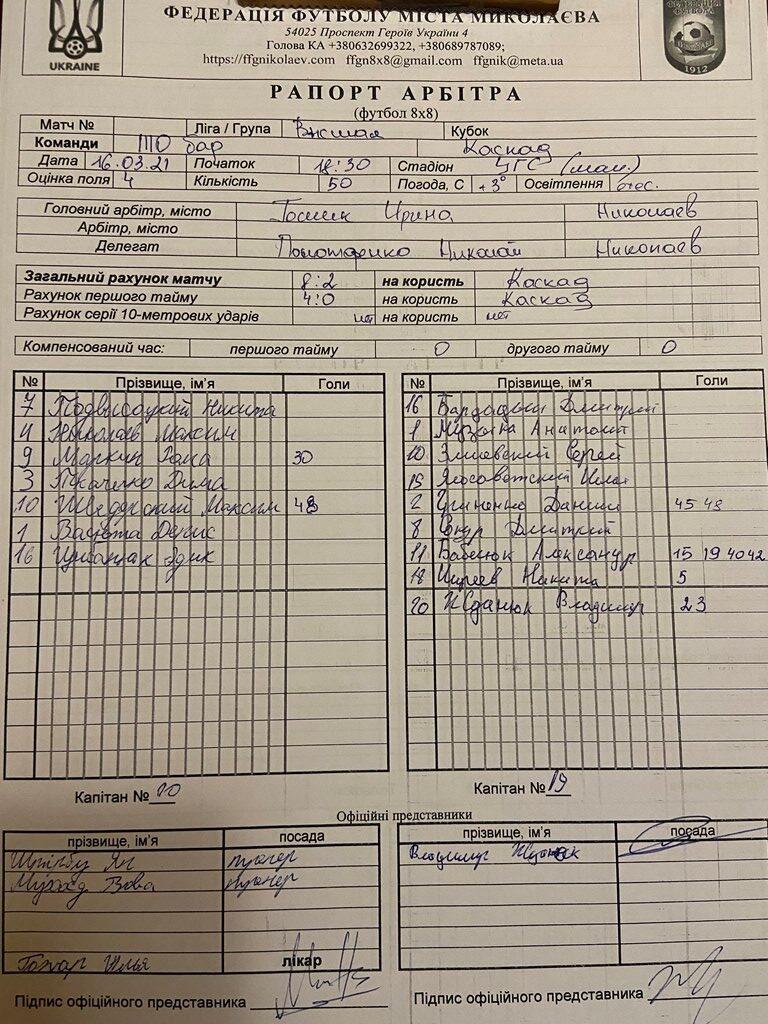 ФЕДЕРАЦІЯ ФУТБОЛУ МІСТА МИКОЛАЄВА
54025 Проспект Героїв України 4
Голова КА +380632699322, +380689787089;
https://ffgnikolaev.com ffgn8x8@gmail.com ffgnik@meta.ua
UKRAINE
1912
РАПОРТ АРБІТРА
(футбол 8х8)
Матч № Ліга / Група Высшая Кубок
Команди ТТО бар Каскад
Дата 16.03.21 Початок 18:30 Стадіон ЦГС (мал.)
Оцінка поля 4 Кількість 50 Погода, С +3° Освітлення
Головний арбітр, місто Ирина Николаев
Арбітр, місто
Делегат Николай Николаев
Загальний рахунок матчу 8:2 на користь Каскад
Рахунок першого тайму 4:0 на користь Каскад
Рахунок серії 10-метрових ударів нет на користь нет
Компенсований час: першого тайму 0 другого тайму 0
№ Прізвище, ім'я Голи
7 Подвысоцкий Никита
4 Николаев Максим
9 Маркин Рома 30
3 Ткаченко Дима
10 Максим 48
1 Денис
16 Эдик
Капітан № 10
№ Прізвище, ім'я Голи
16 Дмитрий
1 Музыка Анатолий
10 Сергей
15 Илья
2 Даниил 45 48
8 Дмитрий
11 Бабенюк Александр 15 19 40 42
18 Никита 5
20 Жданюк Владимир 23
Капітан № 19
Офіційні представники
прізвище, ім'я посада
Ян тренер
Вова тренер
Илья лікар
Підпис офіційного представника
прізвище, ім'я посада
Владимир
Підпис офіційного представника